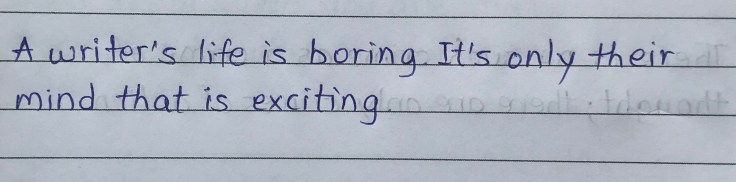 A writer's life is boring. It's only their
mind that is exciting.